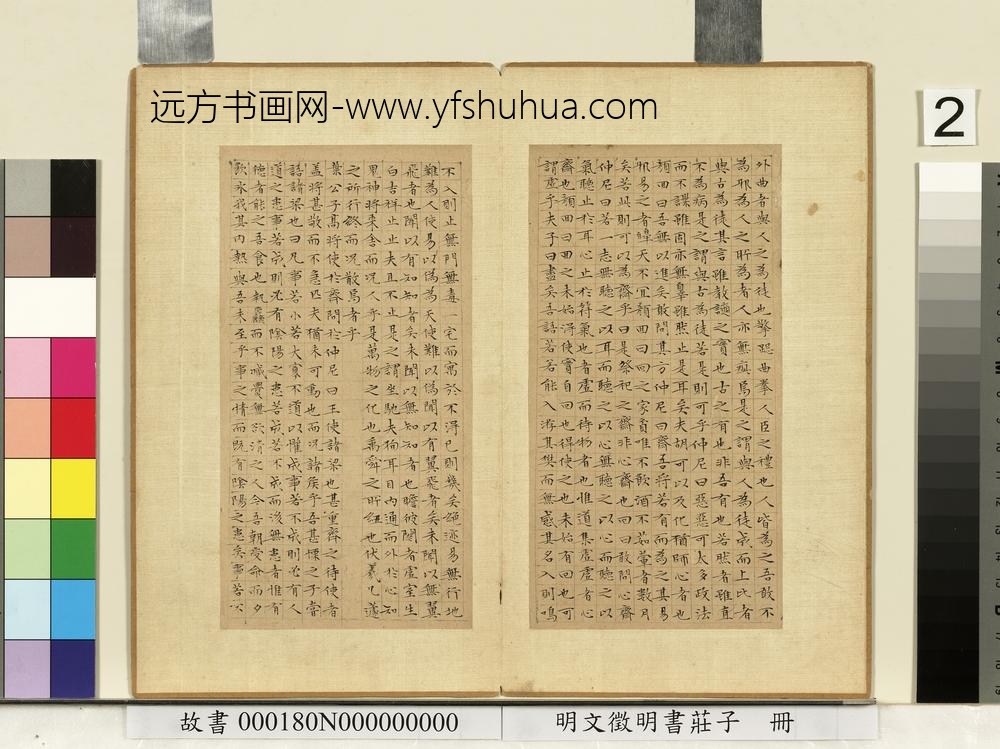 远方书画网-www.yfshuhua.com
2
外曲者與人之為徒也擎跽曲拳人臣之禮也人皆為之吾敢不
為邪為人之所為者人亦無疵焉是之謂與人為徒成而上比者
與古為徒其言雖教讁之實也古之有也非吾有也若然者雖直
不為病是之謂與古為徒若是則可乎仲尼曰惡惡可太多政法
而不諜雖固亦無辠雖然止是耳矣夫胡可以及化猶師心者也
顏回曰吾無以進矣敢問其方仲尼曰齋吾將若有而為之其易
邪易之者皞天不宜顏回曰回之家貧唯不飲酒不茹葷者數月
矣若此則可以為齋乎曰是祭祀之齋非心齋也回曰敢問心齋
仲尼曰若一志無聽之以耳而聽之以心無聽之以心而聽之以
氣聽止於耳心止於符氣也者虛而待物者也惟道集虛虛者心
齋也顏回曰回之未始得使實自回也得使之也未始有回也可
謂虛乎夫子曰盡矣吾語若若能入游其樊而無感其名入則鳴
不入則止無門無毒一宅而寓於不得已則幾矣絕迹易無行地
難為人使易以偽為天使難以偽聞以有翼飛者矣未聞以無翼
飛者也聞以有知知者矣未聞以無知知者也瞻彼闋者虛室生
白吉祥止止夫且不止是之謂坐馳夫徇耳目內通而外於心知
鬼神將來舍而況人乎是萬物之化也禹舜之所紐也伏羲几蘧
之所行終而況散焉者乎
葉公子高將使於齊問於仲尼曰王使諸梁也甚重齊之待使者
蓋將甚敬而不急匹夫猶未可動也而況諸侯乎吾甚慄之子嘗
語諸梁也曰凡事若小若大寡不道以懽成事若不成則必有人
道之患事若成則必有陰陽之患若成若不成而後無患者惟有
德者能之吾食也執麤而不臧爨無欲清之人今吾朝受命而夕
飲冰我其內熱與吾未至乎事之情而既有陰陽之患矣事若不
故書 000180N000000000
明文徵明書莊子 冊